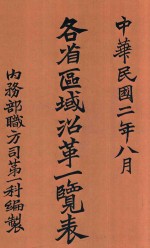 中華民國二年八月
各省區域沿革一覽表
內務部職方司第一科編製